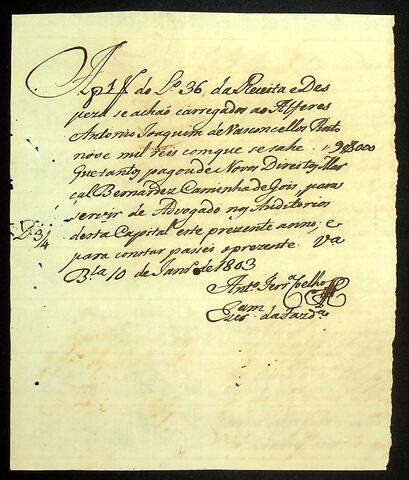 A p 1 f do L.º 36 da Receita e Des
peza se achaõ carregados ao Alferes
Antonio Joaquim de Vasconcellos Pinto
nove mil réis com que se sahe 9$000
Que tantos pagou de Novos Direitos Mar
çal Bernardez Caminha de Gois, para
servir de Advogado nos Auditorios
desta Capital este prezente anno; e
para constar passei o prezente. Va
B.la 10 de Janr.º de 1803
Ant.º Ferr.ª Coelho
Escr.am da Fazd.ª
D. 3/4